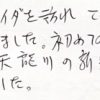 イダを訪れて
ました。初めての
天龍川の新
した。